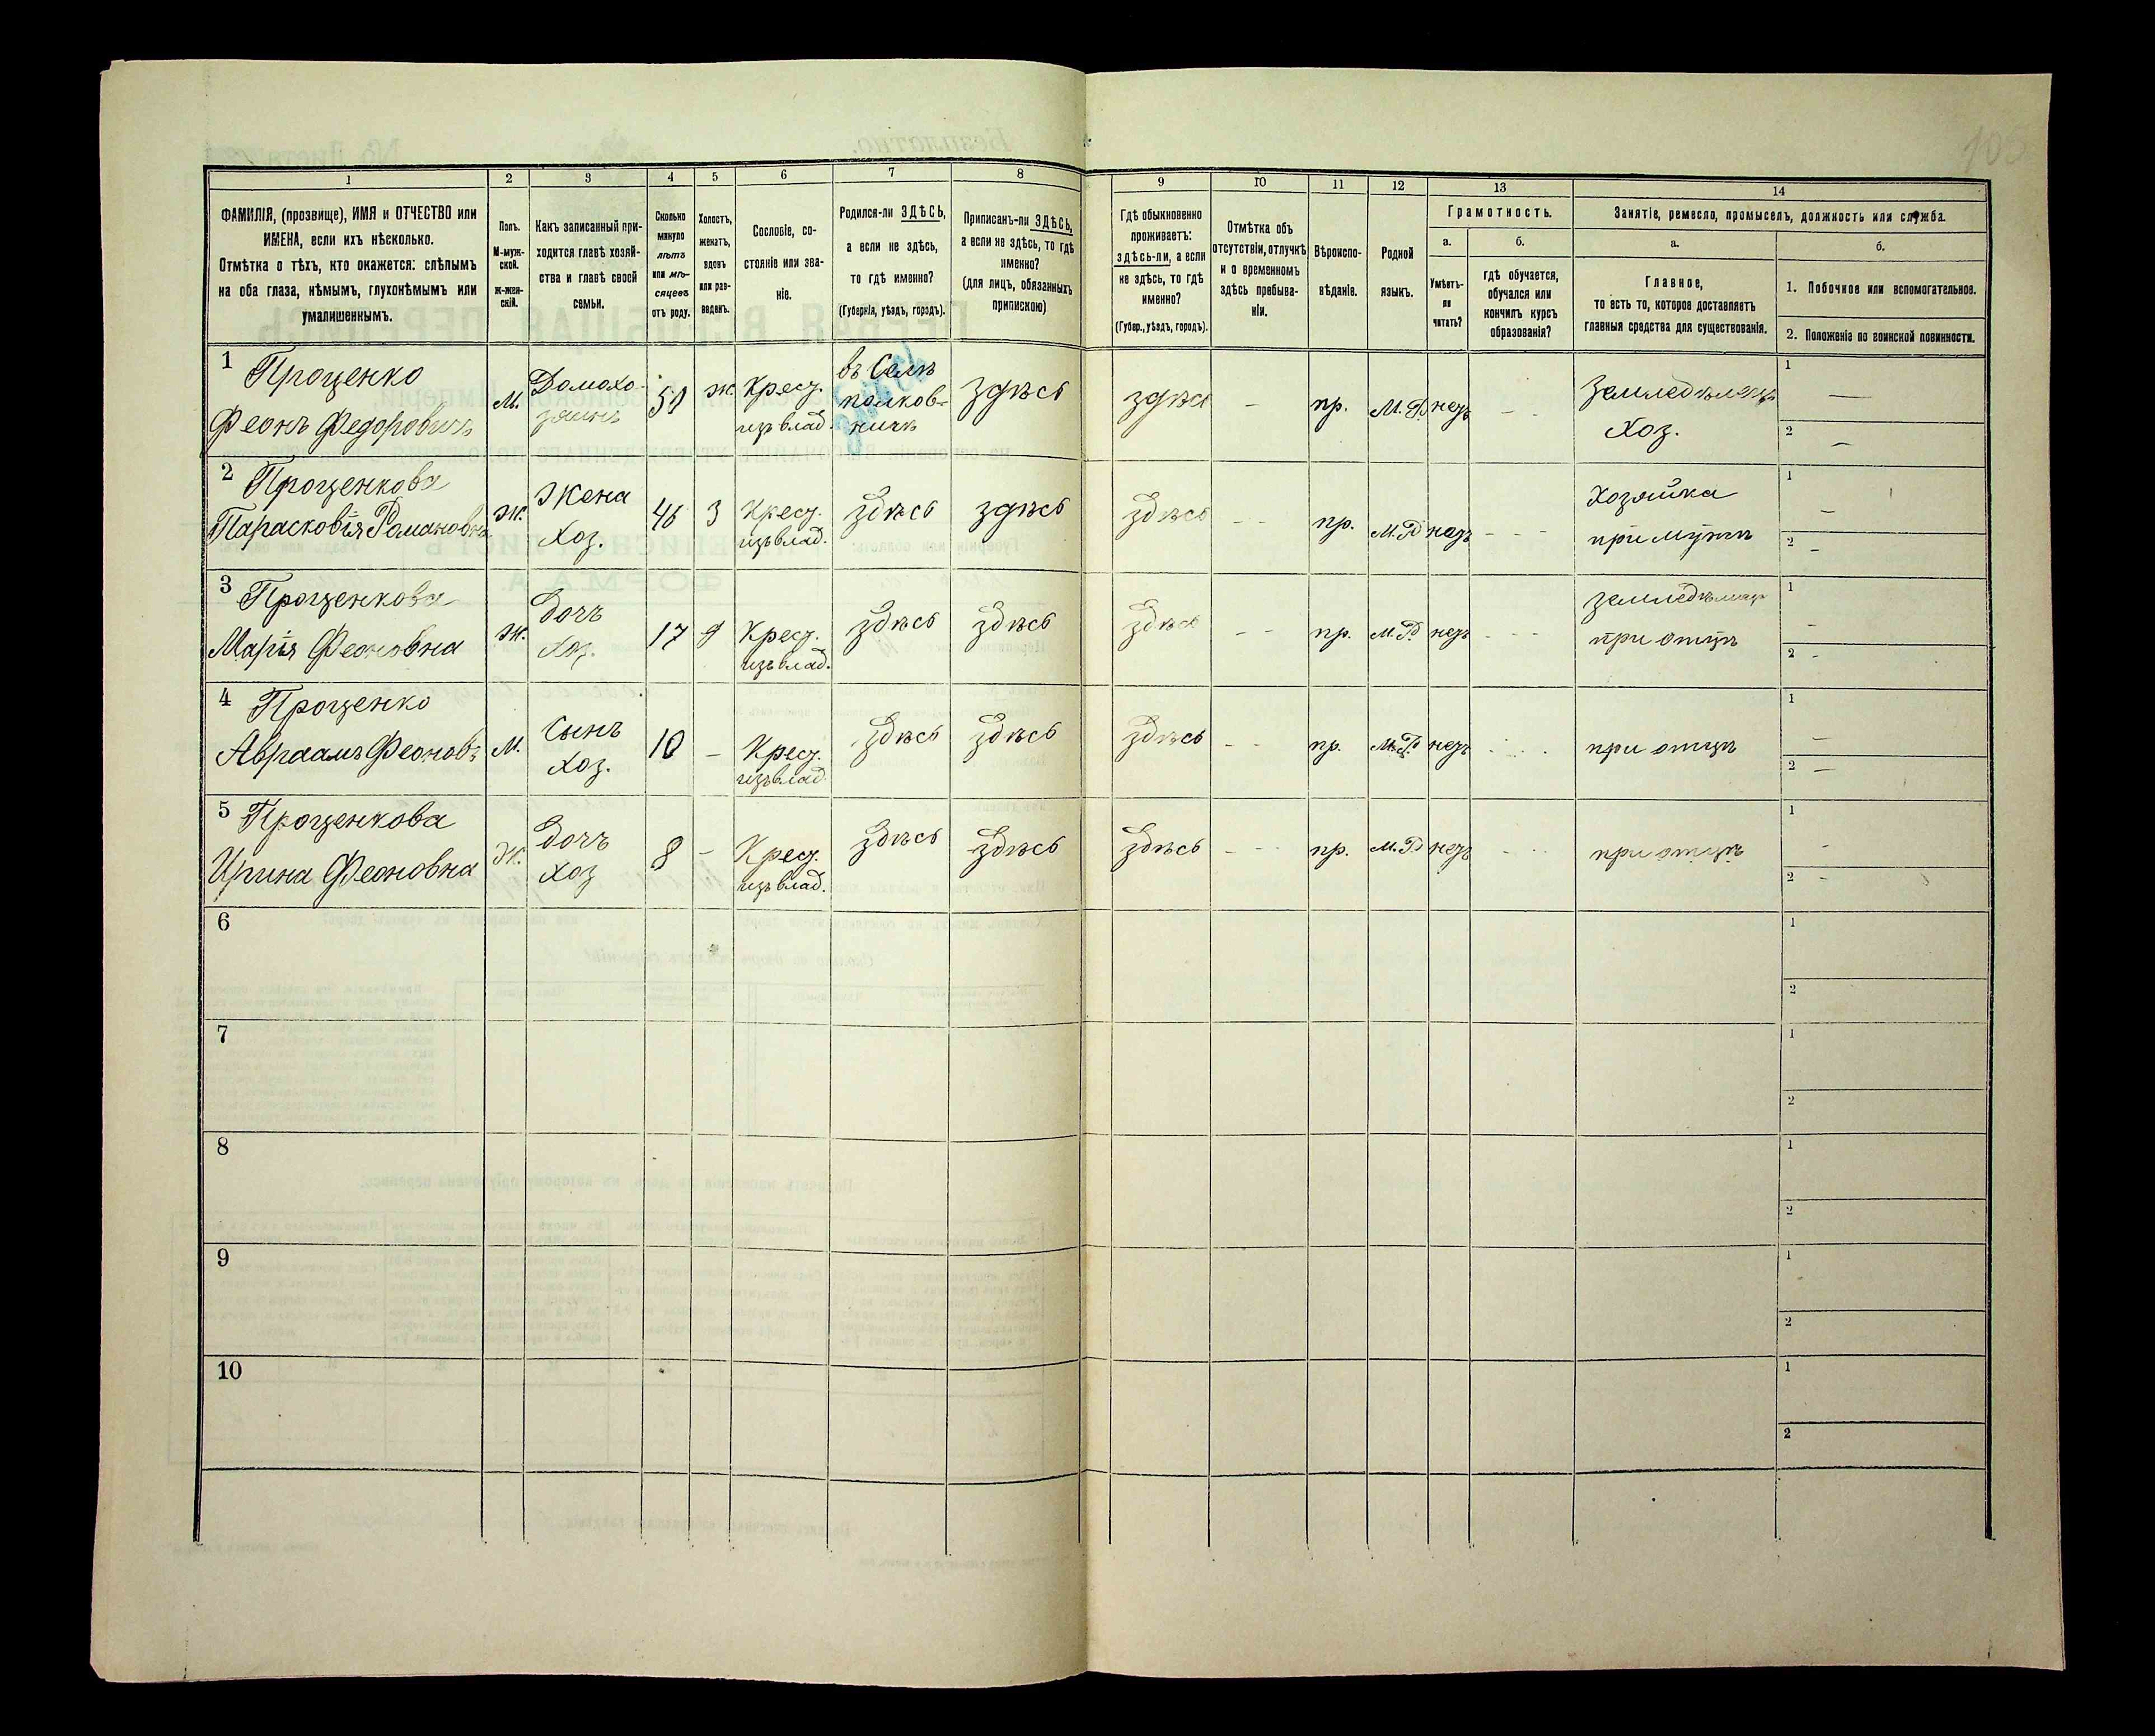 1 2 3 4 5 6 7 8 9 10 11 12 13 14
ФАМИЛІЯ, (прозвище), ИМЯ и ОТЧЕСТВО или
ИМЕНА, если ихъ нѣсколько.
Отмѣтка о тѣхъ, кто окажется: слѣпымъ
на оба глаза, нѣмымъ, глухонѣмымъ или
умалишеннымъ.
Полъ.
М-муж-
ской.
Ж-жен-
скій.
Какъ записанный при-
ходится главѣ хозяй-
ства и главѣ своей
семьи.
Сколько
минуло
лѣтъ
или мѣ-
сяцевъ
отъ роду.
Холостъ,
женатъ,
вдовъ
или раз-
веденъ.
Сословіе, со-
стояніе или зва-
ніе.
Родился-ли ЗДѢСЬ,
а если не здѣсь,
то гдѣ именно?
(Губернія, уѣздъ, городъ).
Приписанъ-ли ЗДѢСЬ,
а если не здѣсь, то гдѣ
именно?
(для лицъ, обязанныхъ
припискою)
Гдѣ обыкновенно
проживаетъ:
здѣсь-ли, а если
не здѣсь, то гдѣ
именно?
(Губер., уѣздъ, городъ).
Отмѣтка объ
отсутствіи, отлучкѣ
и о временномъ
здѣсь пребыва-
ніи.
Вѣроиспо-
вѣданіе.
Родной
языкъ.
Грамотность.
а.
Умѣетъ-
ли
читать?
б.
гдѣ обучается,
обучался или
кончилъ курсъ
образованія?
Занятіе, ремесло, промыселъ, должность или служба.
а.
Главное,
то есть то, которое доставляетъ
главныя средства для существованія.
б.
1. Побочное или вспомогательное.
2. Положеніе по воинской повинности.
1 Проценко
Феонъ Федоровичъ
М.
Домохо-
зяинъ
50
Ж.
Крест.
изъ влад.
въ Селѣ
полков-
ничѣ
здѣсь
здѣсь
-
пр.
М.Р.
негъ
- -
земледѣлецъ
Хоз.
1 —
2 —
2 Проценкова
Парасковія Романовна
Ж.
Жена
Хоз.
46
З
Крест.
изъ влад.
здѣсь
здѣсь
здѣсь
- -
пр.
М.Р.
негъ
- - -
Хозяйка
при мужѣ
1 —
2 -
3 Проценкова
Марія Феоновна
Ж.
дочь
Хоз.
17
д
Крест.
изъ влад.
здѣсь
здѣсь
здѣсь
- -
пр.
М.Р.
негъ
- - -
при отцѣ
1 -
2 -
4 Проценко
Авраамъ Феоновъ
М.
Сынъ
Хоз.
10
-
Крест.
изъ влад.
здѣсь
здѣсь
здѣсь
- -
пр.
М.Р.
негъ
при отцѣ
1 —
2 —
5 Проценкова
Ирина Феоновна
Ж.
дочь
Хоз
8
-
Крест.
изъ влад.
здѣсь
здѣсь
здѣсь
- - -
пр.
М.Р.
негъ
при отцѣ
1 -
2 -
6
1
2
7
1
2
8
1
2
9
1
2
10
1
2